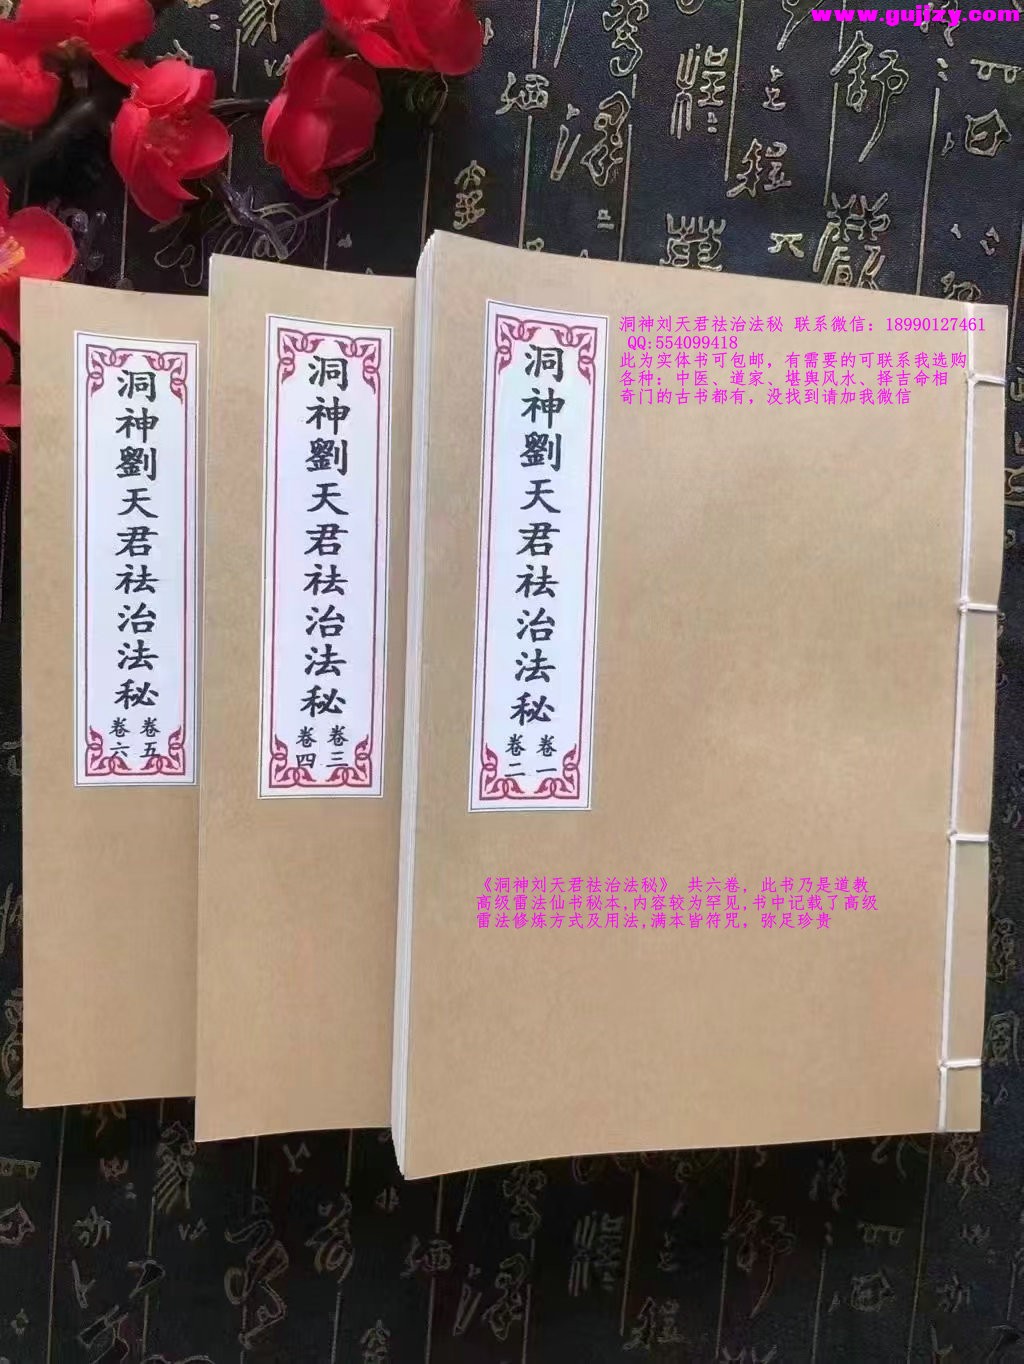 www.gujizy.com
洞神刘天君祛治法秘 联系微信：18990127461
QQ:554099418
此为实体书可包邮，有需要的可联系我选购
各种：中医、道家、堪舆风水、择吉命相
奇门的古书都有，没找到请加我微信
洞神劉天君祛治法秘
卷一
卷二
洞神劉天君祛治法秘
卷三
卷四
洞神劉天君祛治法秘
卷五
卷六
《洞神刘天君祛治法秘》 共六卷，此书乃是道教
高级雷法仙书秘本,内容较为罕见,书中记载了高级
雷法修炼方式及用法,满本皆符咒，弥足珍贵